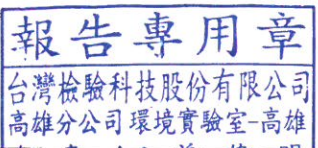 報告專用章
台灣檢驗科技股份有限公司
高雄分公司環境實驗室-高雄